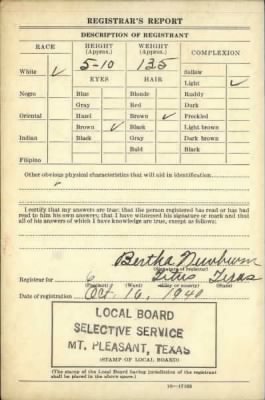 REGISTRAR'S REPORT
DESCRIPTION OF REGISTRANT
RACE HEIGHT (Approx.) WEIGHT (Approx.) COMPLEXION
White ✓ 5-10 135 Sallow
EYES HAIR Light ✓
Negro Blue Blonde Ruddy
Gray Red Dark
Oriental Hazel Brown ✓ Freckled
Brown ✓ Black Light brown
Indian Black Gray Dark brown
Bald Black
Filipino
Other obvious physical characteristics that will aid in identification
I certify that my answers are true; that the person registered has read or has had
read to him his own answers; that I have witnessed his signature or mark and that
all of his answers of which I have knowledge are true, except as follows:
Bertha
(Signature of registrar)
Registrar for 6 Titus Texas
(Precinct) (Ward) (City or county) (State)
Date of registration Oct. 16, 1940
LOCAL BOARD
SELECTIVE SERVICE
MT. PLEASANT, TEXAS
(STAMP OF LOCAL BOARD)
(The stamp of the Local Board having jurisdiction of the registrant
shall be placed in the above space.)